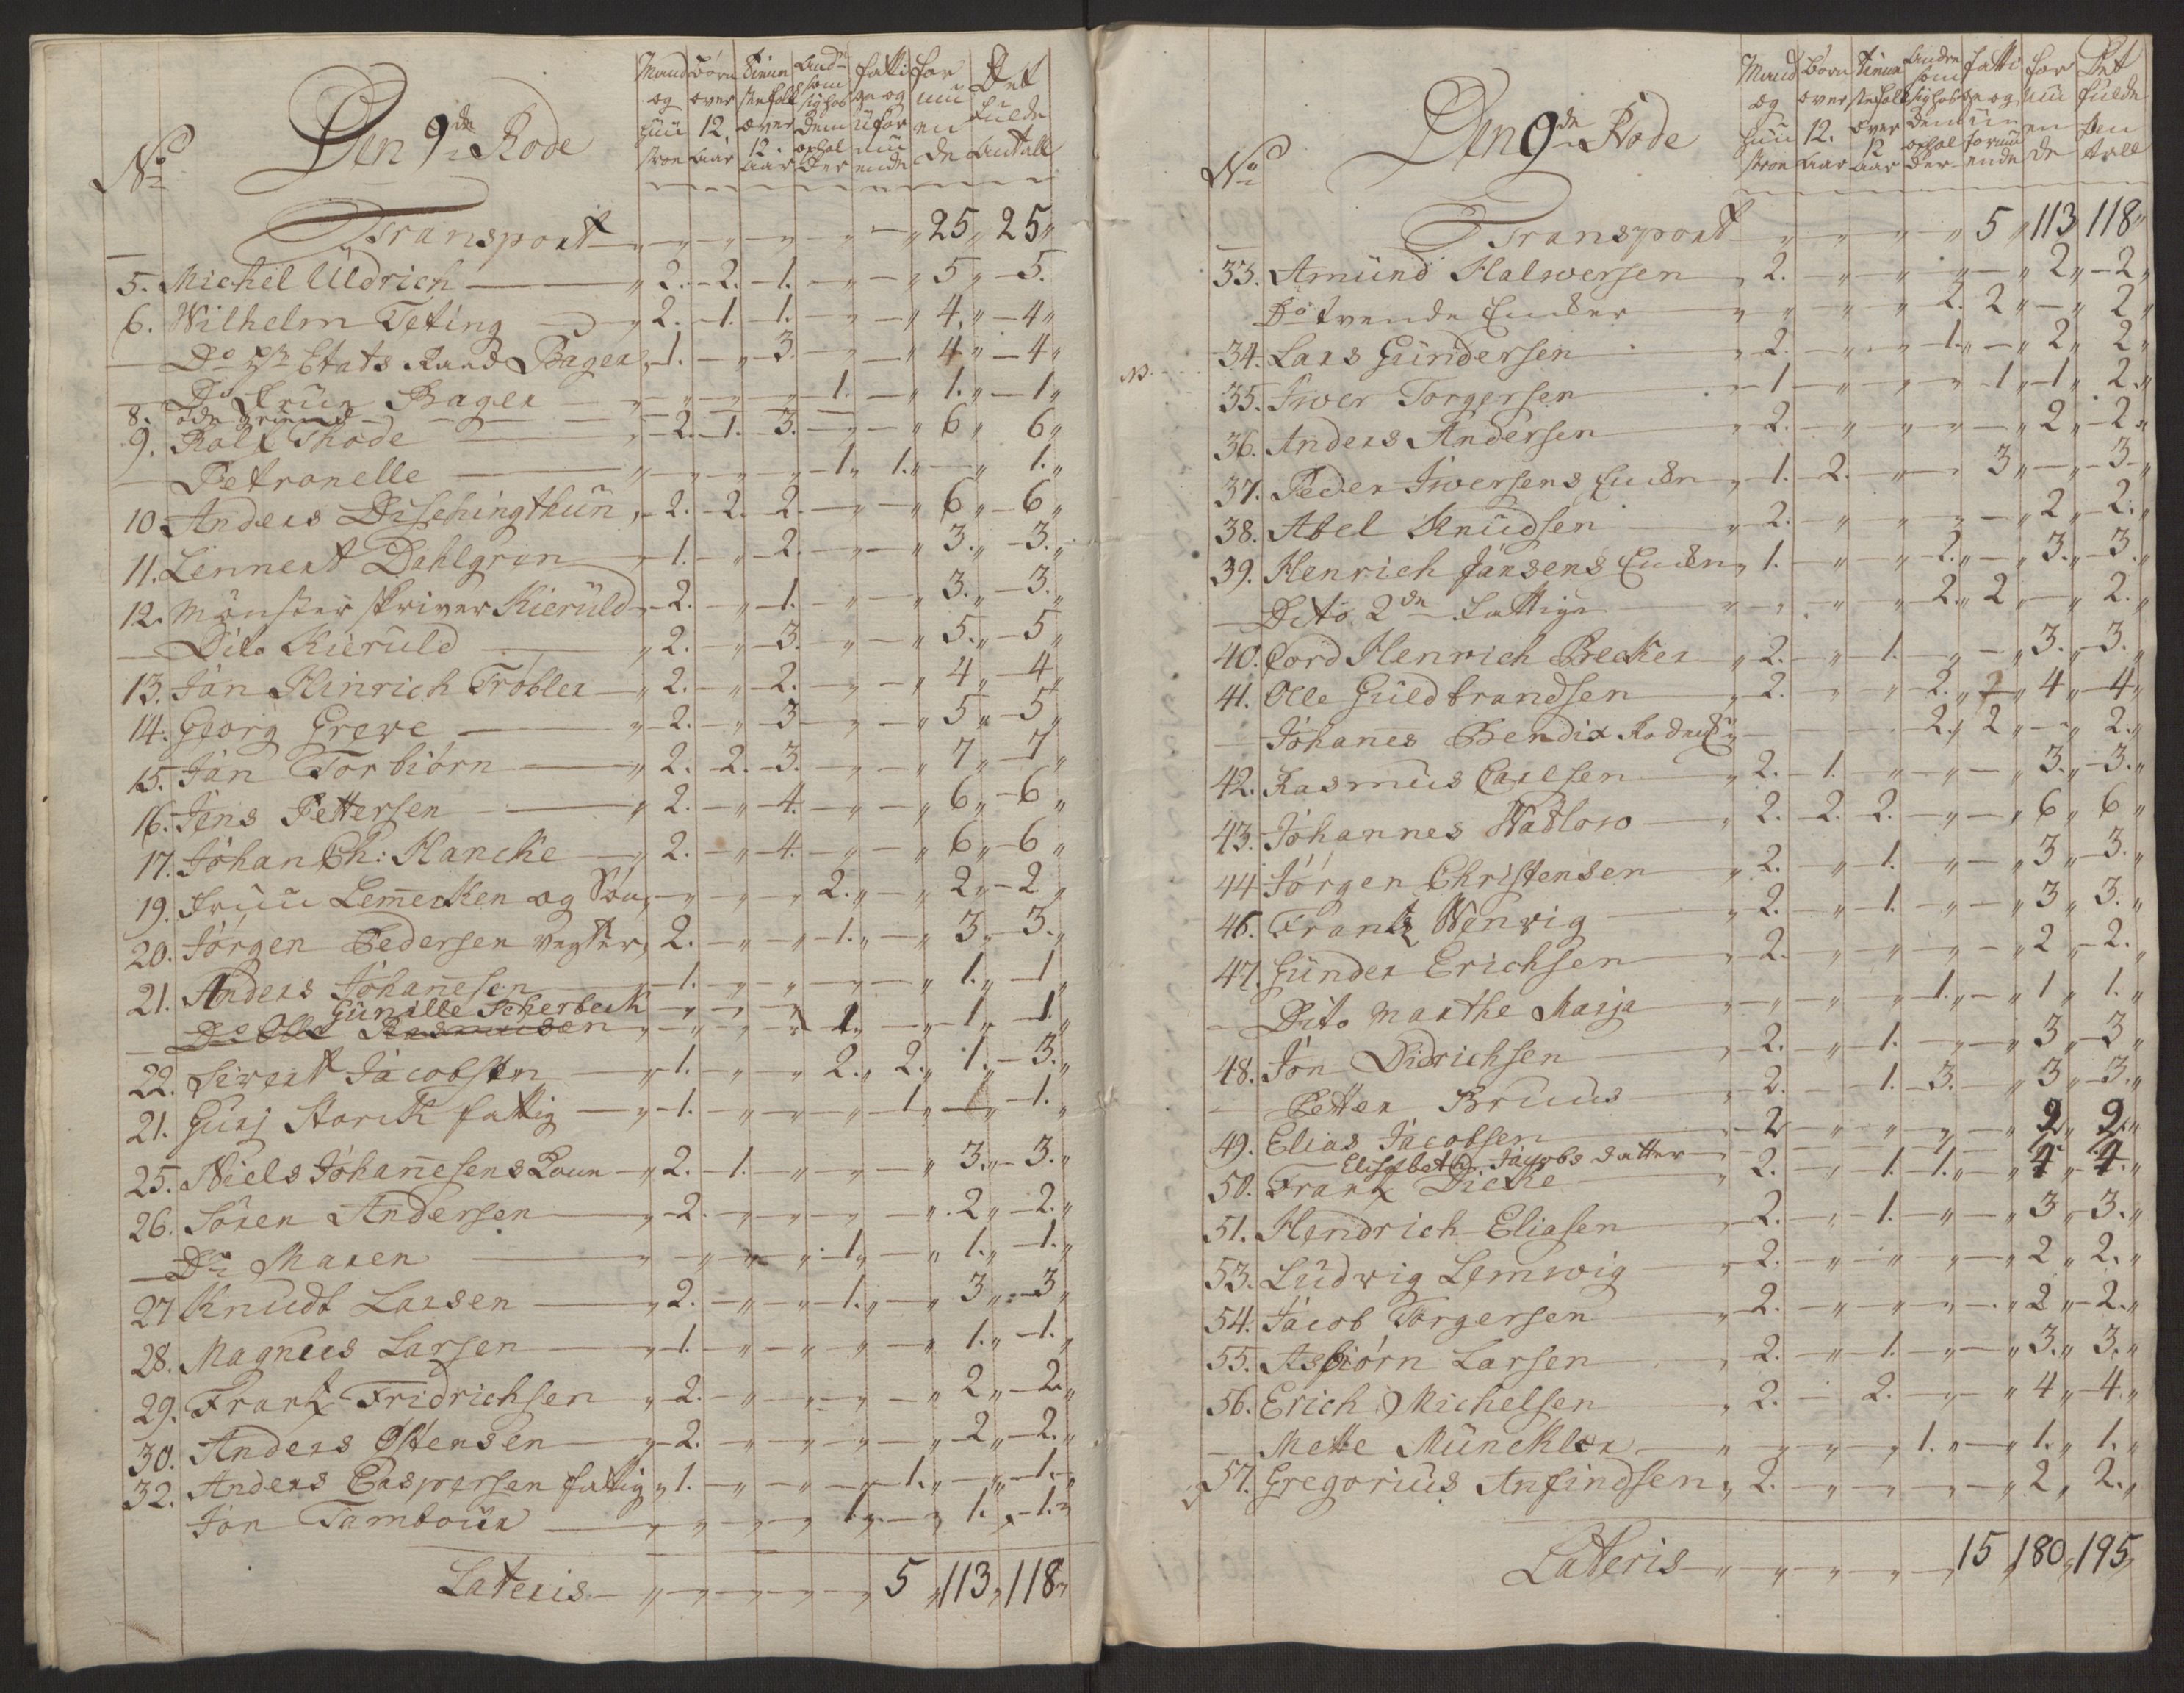 No
Den 9de Rode
Mand og Huu stroe
Børn over 12. Aar
Tienn stefolk over 12. Aar
Andre som sig hos dem ophol der
fatti ge og ufor muu ende
for muu en de
Det fulde Antall
Transport " " " " " 25 " 25 "
5. Michel Uldrich " 2. 2. 1. " 5 " 5.
6. Wilhelm Teting " 2. 1. 1. " 4 " 4 "
Do Hr Etats Raad Bager 1. " 3. " 4 " 4 "
Do Frue Bager " " " 1. " 1. " 1 "
8. øde grund
9. Ralf Thode 2. 1. 3. " 6 " 6 "
Petronelle " " " " 1 " 1. " " 1. "
10. Anders Dischingthun 2. 2. 2. " 6 " 6 "
11. Lennert Dahlgren 1. " 2. " 3. " 3. "
12. Mønsterskriver Kieruld 2. " 1. " 3. " 3. "
Dito Kieruld " 2. " 3. " 5. " 5 "
13. Jan Hinrich Trøbler " 2. " 2. " 4 " 4 "
14. Georg Greve " 2. " 3 " 5 " 5 "
15. Jan Torbiørn " 2. 2. 3. " 7 " 7 "
16. Jens Pettersen " 2. " 4. " 6 " 6 "
17. Johan Ch: Hancke " 2. " 4. " 6 " 6 "
19. Fruu Lemecken og Søn " " " 2. " 2 " 2 "
20. Jørgen Pedersen vegter 2. " " 1. " 3. " 3. "
21. Anders Johanesen 1. " " " 1. " 1 "
Gunille Scherbeck
Do Olle Rasmussen " " " 1 " 1 " 1 "
22. Sivert Jacobsen 1. " " 2. " 2. " 1. 3. "
21. Gurj Storck fattig 1. " " " 1 " 1. "
25. Niels Johanesens Koun " 2. 1. " " 3. " 3. "
26. Søren Andersen " 2. " " " 2 " 2. "
Do Maren " " " 1 " 1. " 1. "
27 Knudt Larsen " 2. " " 1. " 3 " 3 "
28. Magnus Larsen 1. " " " 1. " 1. "
29. Frantz Fridrichsen " 2. " " " 2 " 2 "
30. Anders Ostensen 2. " " " 2 " 2. "
32. Anders Caspersen fattig " 1. " " " 1. " 1. "
Jon Tambour " " " 1. " 1. " 1. "
Lateris " " " " 5 " 113 " 118 "
No
Den 9de Rode
Mand og Huu stroe
Børn over 12. Aar
Tienn stefolk over 12 Aar
Andre som sig hos dem ophol der
fatti ge og un formuu ende
for muu en de
Det fulde An tall
Transport " " " " 5 " 113 118 "
33. Amund Halversen " 2. " " " 2 " 2 "
Do tvende Encker " " " 2. 2 " " 2 "
34. Lars Gundersen " 2. " " 1. " 2 " 2 "
NB.
35. Iver Torgersen 1 " " " 1 " 1 " 2. "
36. Anders Andersen " 2. " " " 2 " 2 "
37. Peder Iversens Encke " 1. 2. " 3 " " 3 "
38. Abel Knudsen " 2. " " " 2 " 2. "
39. Henrich Jansens Encke " 1. " " 2. " 3. " 3. "
Dito 2de fattige " " " 2. " 2 " " 2. "
40. Cord Henrich Becker " 2. " 1. " 3. " 3. "
41. Olle Guldbrandsen " 2. " " 2. " 4 " 4 "
Johanes Bendix 2. " 2 " " 2. "
42. Rasmus Carlsen " 2. 1. " " 3. " 3. "
43. Johannes Wadlow " 2. 2. 2. " 6 " 6 "
44 Jørgen Christensen " 2. " 1. " 3 " 3. "
46. Frantz Wenvig " 2. " 1. " 3 " 3. "
47. Gunder Erichsen " 2. " " " 2 " 2. "
Dito Marthe Marja " " " 1. " 1 " 1. "
48. Jon Didrichsen " 2. " 1. " 3 " 3 "
Petter Bruus " 2. 1. 3. " 3 " 3. "
49. Elias Jacobsen 2 " " " 2 " 2. "
Elisabeth Jacobs datter
50. Frantz Dicke " 2. " 1. 1. " 4 " 4. "
51. Hendrich Eliasen 2. " 1. " 3 " 3. "
53. Ludvig Lemwig " 2. " " " 2 " 2. "
54. Jacob Torgersen " 2. " " " 2 " 2. "
55. Asbiørn Larsen " 2. " 1. " 3. " 3. "
56. Erich Michelsen " 2. 2. " 4 " 4. "
Mette Muncklex " " " 1. " 1. " 1. "
57. Gregorius Anfindsen " 2. " " " 2 " 2. "
Lateris " " " " 15 " 180 " 195 "